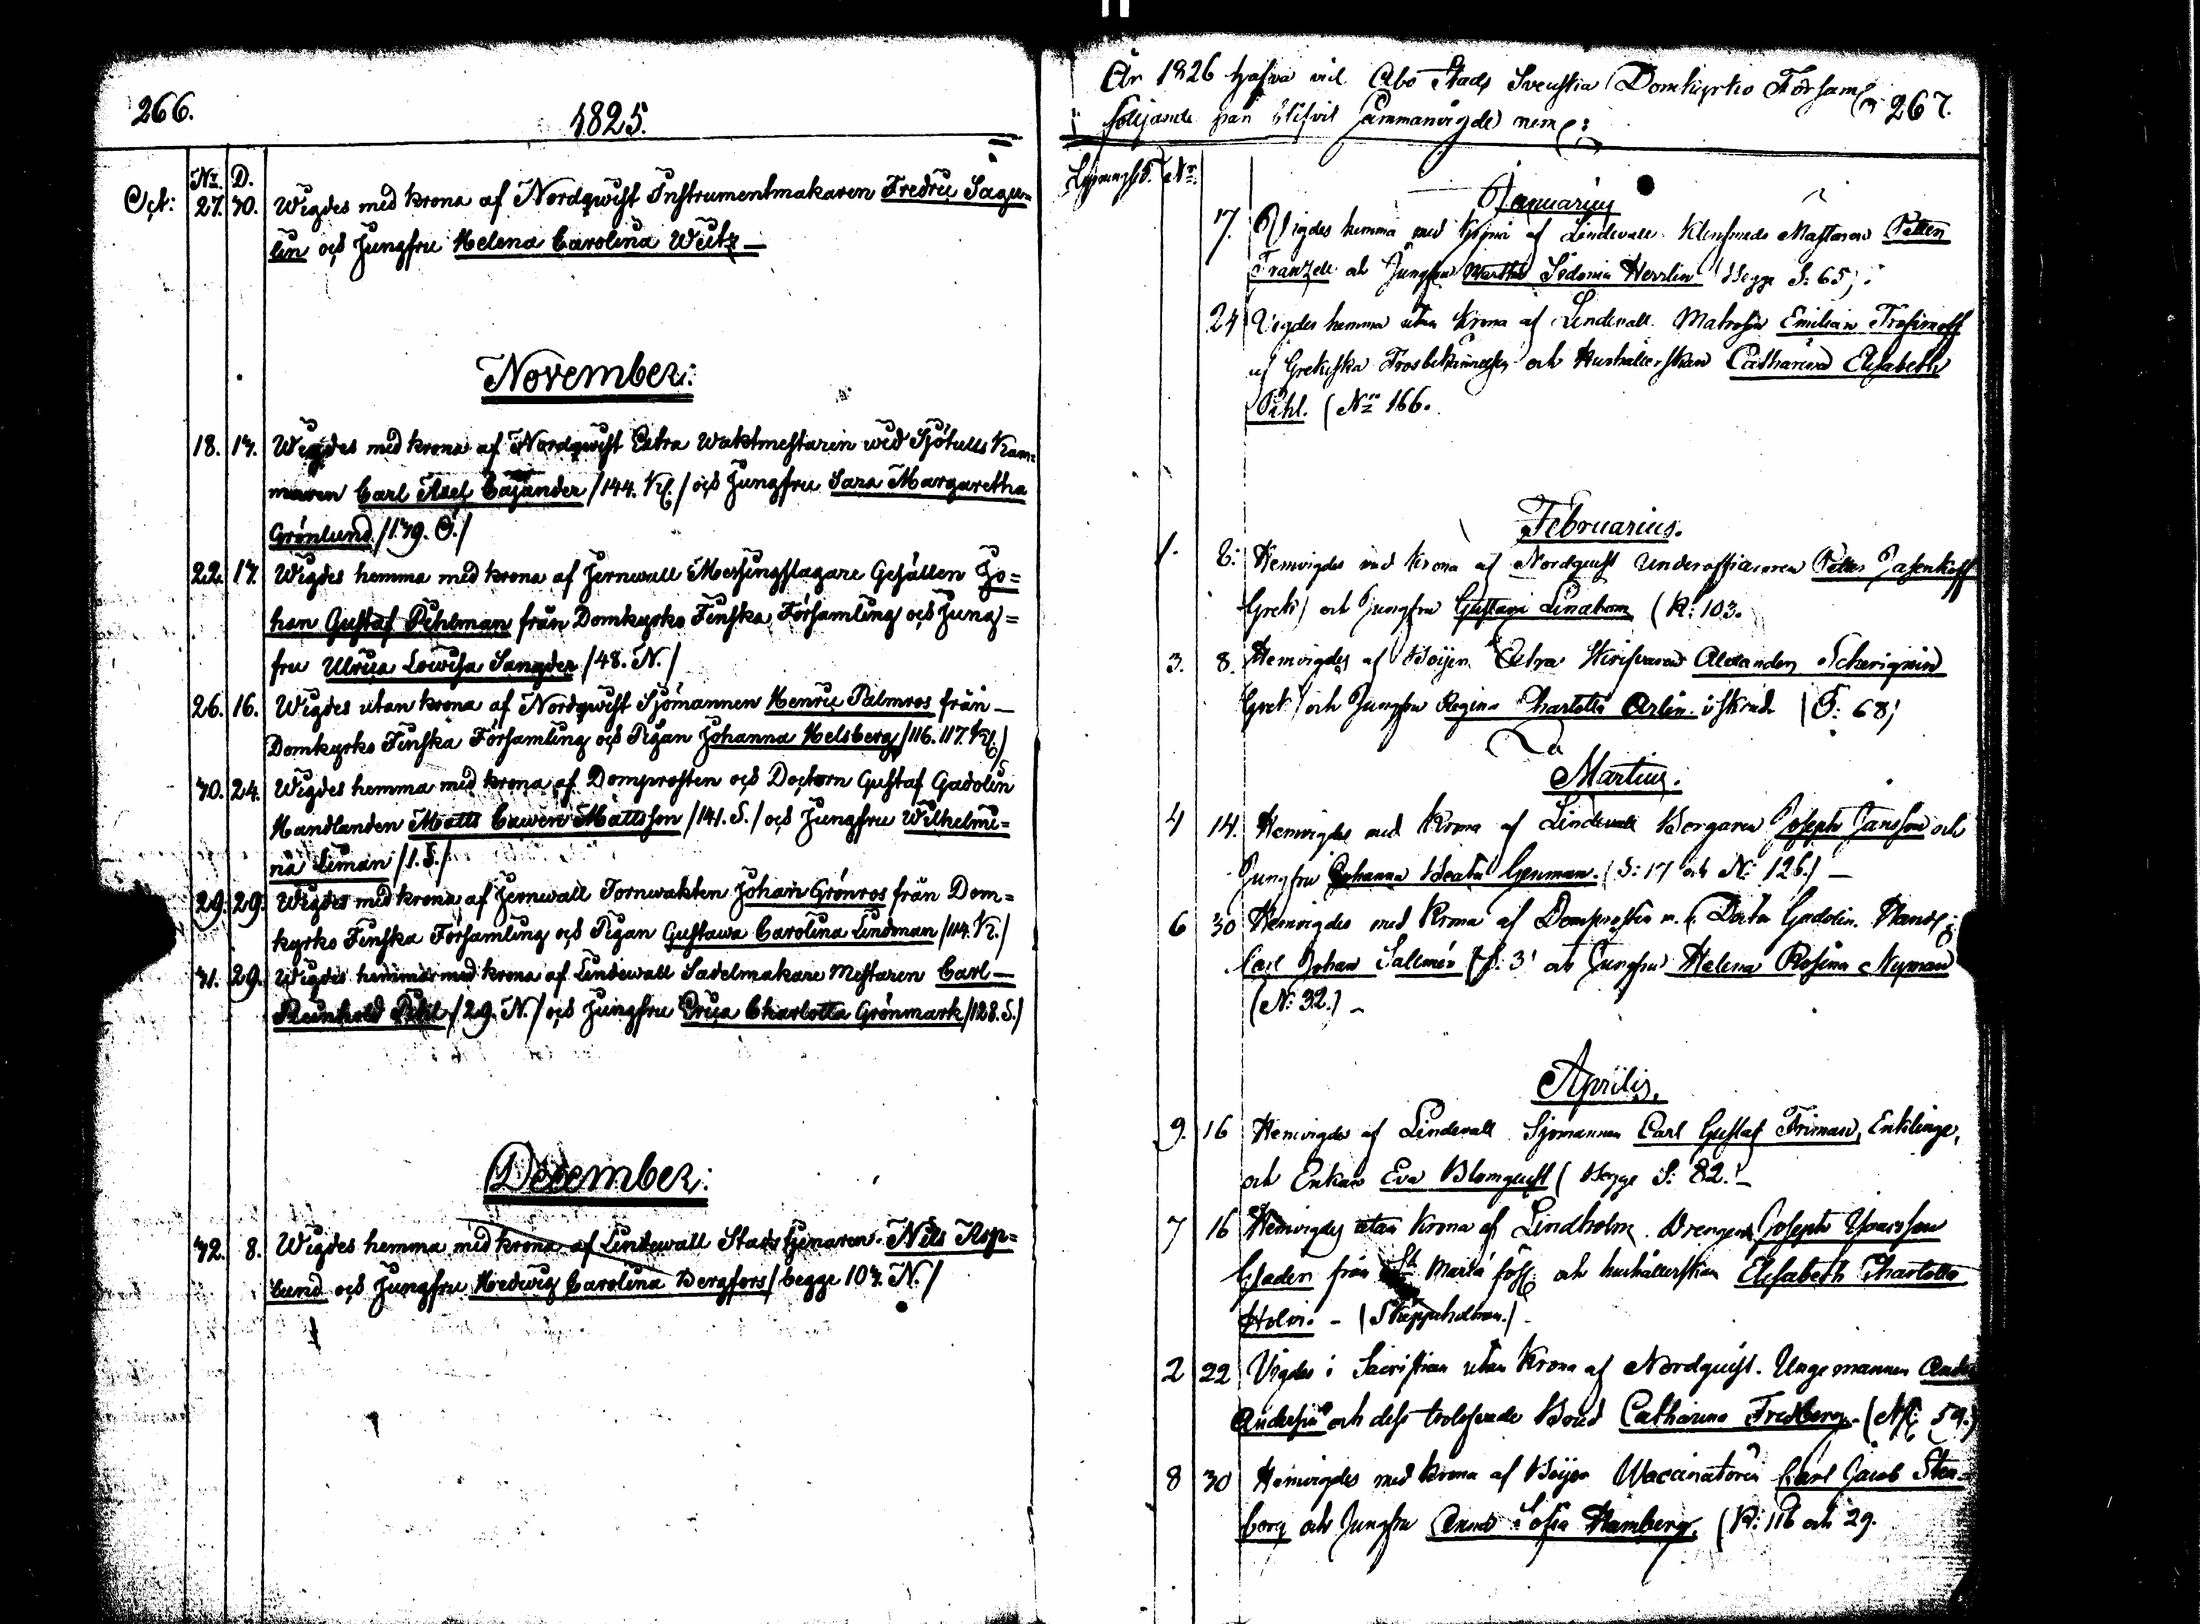 266.
1825.
No. D.
Oct: 27. 30. Wigdes med krona af Nordqwist Instrumentmakaren Fredric Sagu=
lin och Jungfru Helena Carolina Weitz —
November:
18. 13. Wigdes med krona af Nordqwist Extra waktmestaren wid Sjötulls Kam=
maren Carl Axel Cajander /144. Kl:/ och Jungfru Sara Margaretha
Grönlund /139. O./
22. 13. Wigdes hemma med krona af Jernwall Messingslagare Gesällen Jo=
han Gustaf Pihlman från Domkyrko Finska Församling och Jung=
fru Ulrica Lowisa Sangder /48. N./
26. 16. Wigdes utan krona af Nordqwist Sjömannen Henric Palmros från —
Domkyrko Finska Församling och Pigan Johanna Helsberg /116. 117. Kl:/
30. 24. Wigdes hemma med krona af Domprosten och Doctorn Gustaf Gadolin
Handlanden Matts Cawen Mattsson /141. S./ och Jungfru Wilhelmi=
na Liman /1. S./
29. 29. Wigdes med krona af Jernwall Tornwakten Johan Grönros från Dom=
kyrko Finska Församling och Pigan Gustawa Carolina Lindman /114. Kl./
31. 29. Wigdes hemma med krona af Lindewall Sadelmakare Mestaren Carl —
Reinhold Pihl /29. N./ och Jungfru Erica Charlotta Grönmark /128. S./
December:
32. 8. Wigdes hemma med krona af Lindewall Stadstjenaren Nils Asp=
lund och Jungfru Hedwig Carolina Bergfors / begge 103. N./
År 1826 hafva vid Åbo Stads Svenska Domkyrko Församl:n 267.
följande par blifvit sammanvigde neml:
Lysningsb. No.
Januarius
17. Vigdes hemma med Krona af Lindevall. Klensmeds Mästaren Petter
Franzell och Jungfru Martha Sidonia Herrlin (Begge S: 65;
24 Vigdes hemma utan Krona af Lindevall. Matrosen Emilian Trofimoff
af Grekiska Trosbekännelsen och Hushållerskan Catharina Elisabeth
Pihl. (No 166.
Februarius.
1. 8. Hemvigdes med Krona af Nordquist Underofficeraren Petter Jasenkoff
Grek) och Jungfru Gustava Linabom (K: 103.
3. 8. Hemvigdes af Boijer. Extra Skrifvaren Alexander Scherignin
Grek) och Jungfru Regina Charlotta Arlin. (O: 68;
Martius.
4 14. Hemvigdes med Krona af Lindevall Borgaren Joseph Jansson och
Jungfru Johanna Beata Genman. (S: 17 och N: 126.) —
6 30 Hemvigdes med Krona af Domprosten m. m. Doctor Gadolin. Handl:
Carl Johan Sallmén (S: 3' och Jungfru Helena Rosina Nyman
(N: 32.) —
Aprilis.
9. 16 Hemvigdes af Lindevall Sjömannen Carl Gustaf Friman, Enkling,
och Enkan Eva Blomquist (Begge S: 82. —
7 16 Hemvigdes utan Krona af Lindholm. Drengen Joseph
från St Mariæ och hushållerskan Elisabeth Charlotta
Holm. — (Skeppsholmen.)
2 22 Vigdes i Sacristian utan Krona af Nordquist. Unge mannen
Andersin och dess trolofvade Brud Catharina Fredberg. (Kl: 59.)
8 30 Hemvigdes med Krona af Boijer Vaccinatoren Carl Jacob Sten=
borg och Jungfru Anna Sofia Hamberg. (K: 116 och 29.